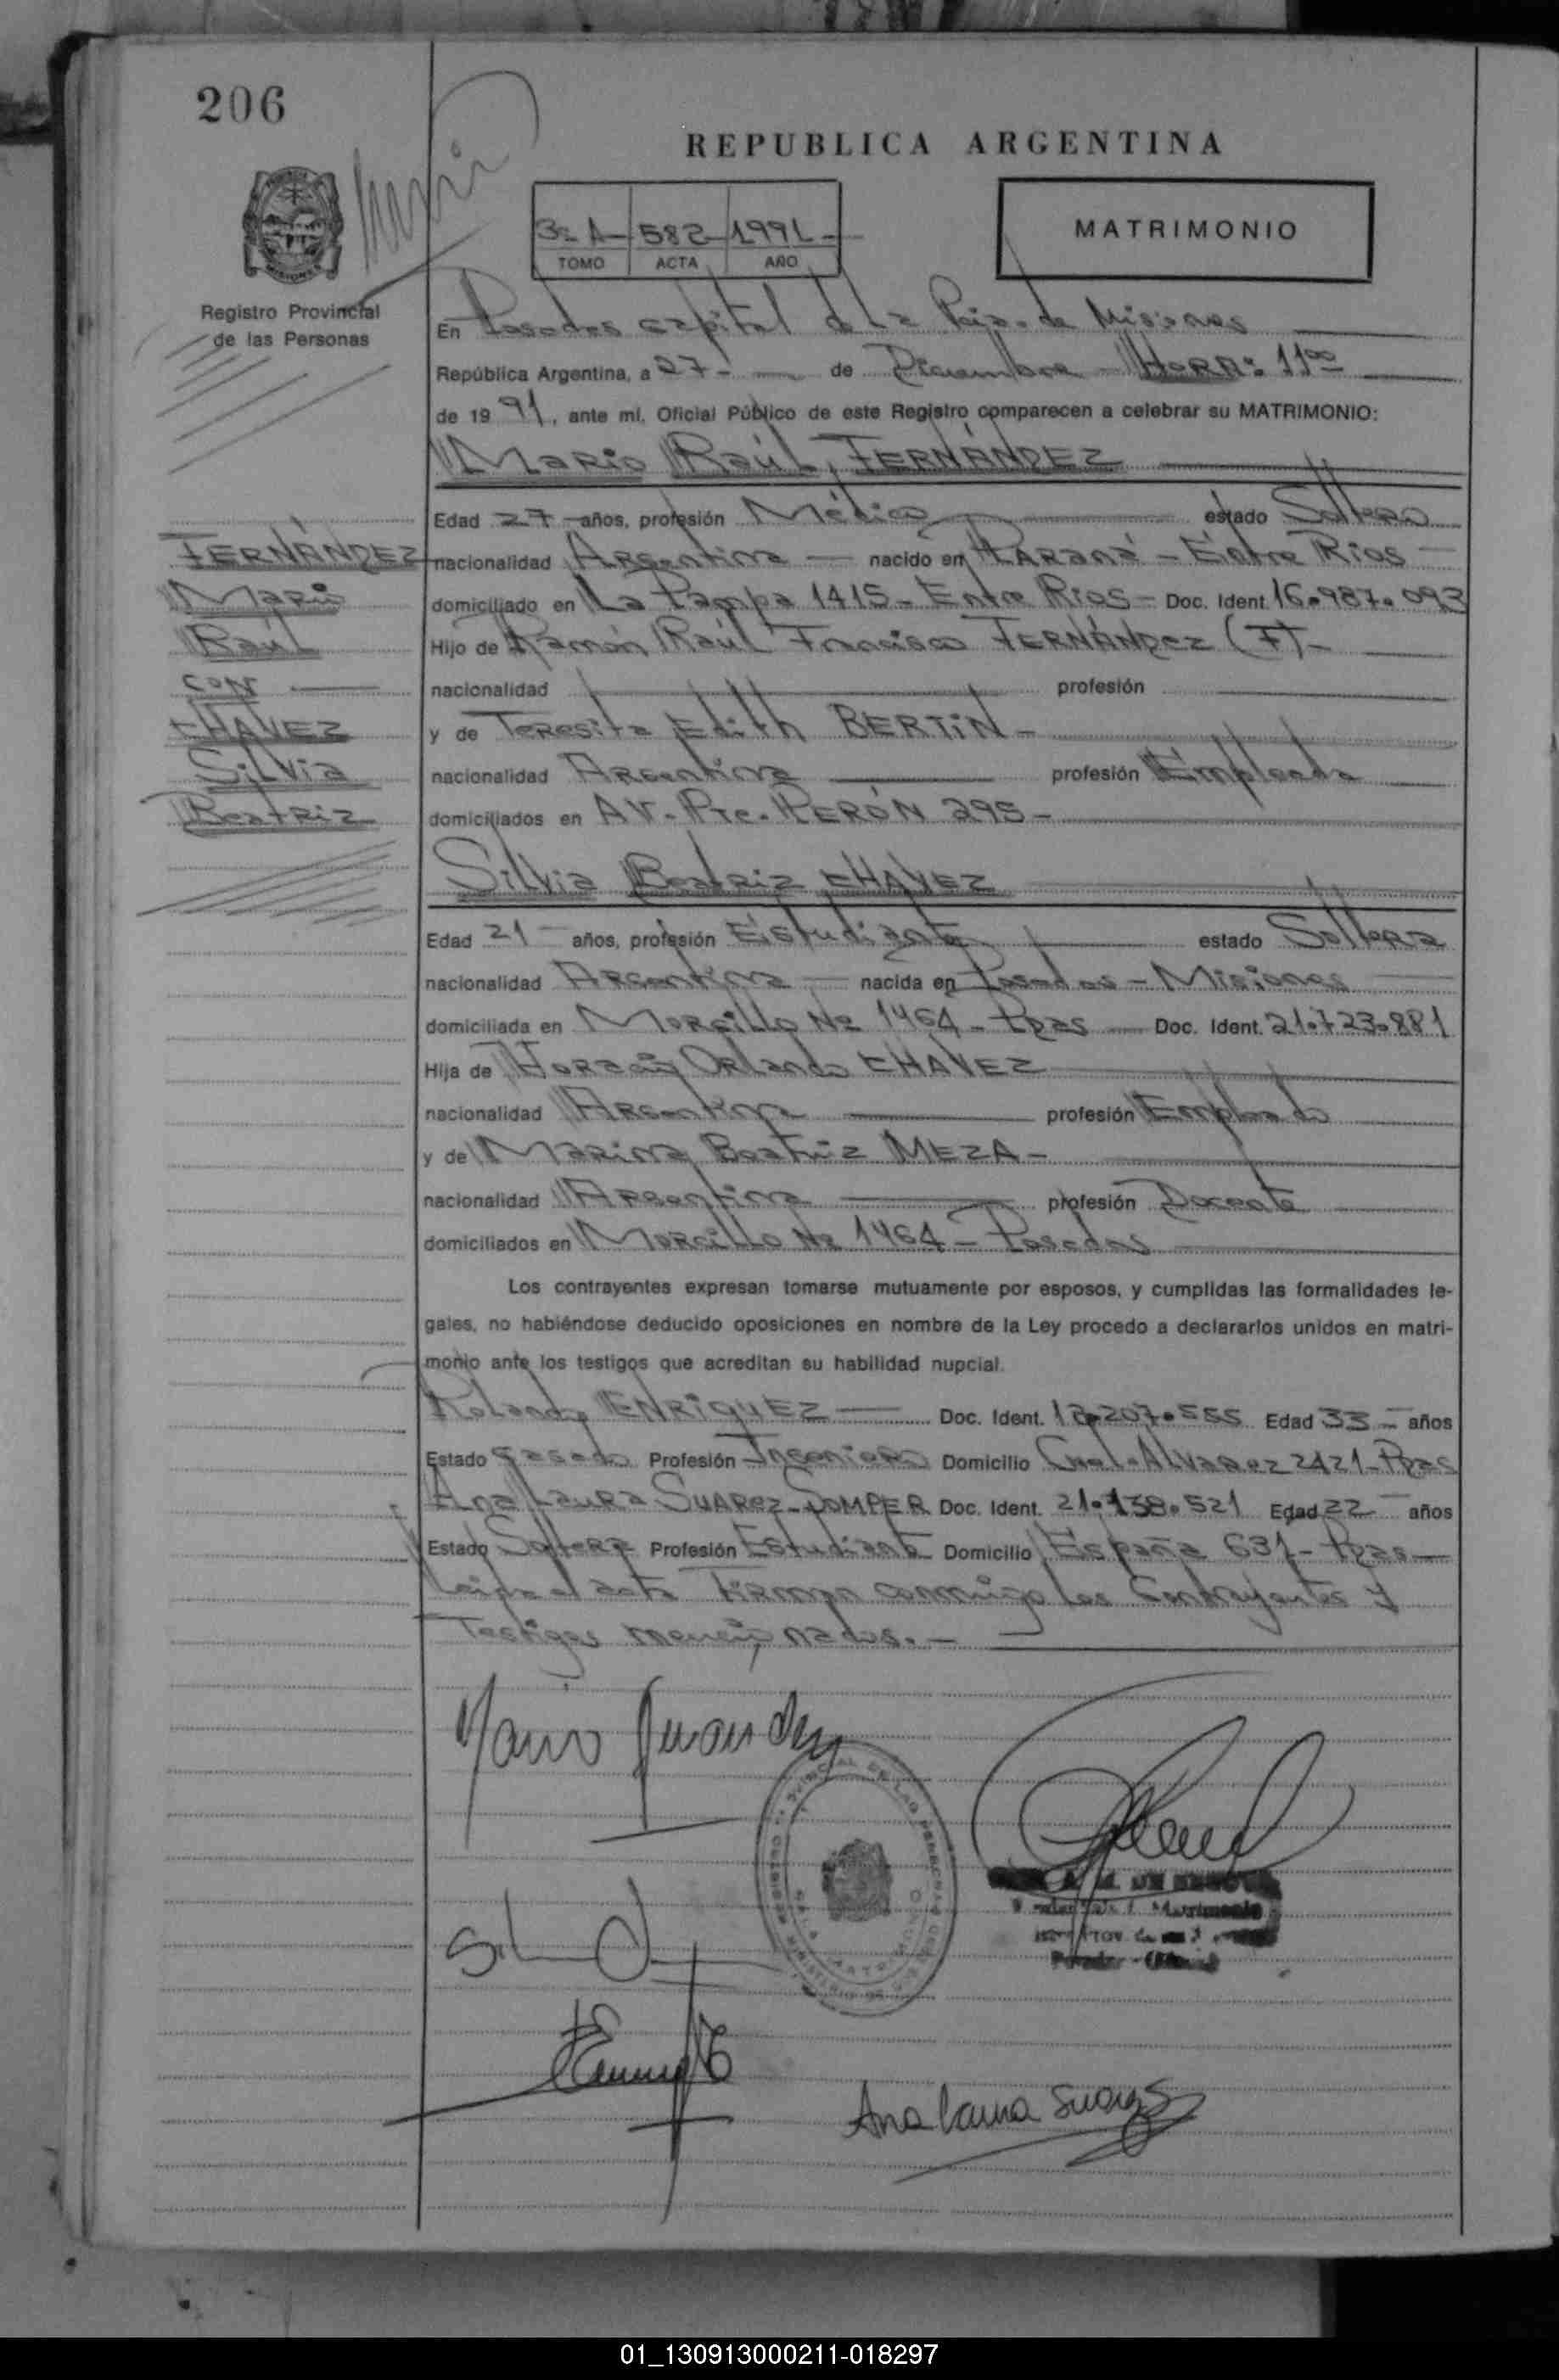 206
REPUBLICA ARGENTINA
MISIONES
Registro Provincial
de las Personas
3º A - 582 - 1991 -
TOMO ACTA AÑO
MATRIMONIO
En Posadas capital de la Pcia. de Misiones
República Argentina, a 27 - de Diciembre - HORA: 11ºº
de 1991, ante mi, Oficial Público de este Registro comparecen a celebrar su MATRIMONIO:
Mario Raúl, FERNÁNDEZ
Edad 27 años, profesión Médico estado Soltero
nacionalidad Argentina nacido en PARANÁ - Entre Ríos
domiciliado en La Pampa 1415 - Entre Ríos - Doc. Ident. 16.987.093
Hijo de Ramón Raúl Francisco FERNÁNDEZ (F) -
nacionalidad profesión
y de Teresita Edith BERTIN -
nacionalidad Argentina profesión Empleada
domiciliados en AV. Pte. PERÓN 295 -
Silvia Beatriz CHAVEZ
Edad 21 años, profesión Estudiante estado Soltera
nacionalidad Argentina nacida en Posadas - Misiones
domiciliada en Morcillo Nº 1464 - Pdas Doc. Ident. 21.723.881
Hija de Horacio Orlando CHAVEZ
nacionalidad Argentina profesión Empleado
y de Marina Beatriz MEZA -
nacionalidad Argentina profesión Docente
domiciliados en Morcillo Nº 1464 - Posadas
FERNÁNDEZ
Mario
Raúl
CON
CHAVEZ
Silvia
Beatriz
Los contrayentes expresan tomarse mutuamente por esposos, y cumplidas las formalidades le-
gales, no habiéndose deducido oposiciones en nombre de la Ley procedo a declararlos unidos en matri-
monio ante los testigos que acreditan su habilidad nupcial.
Rolando ENRIQUEZ Doc. Ident. Edad 33 - años
Estado casado Profesión Ingeniero Domicilio Cnel. Alvarez 2421 - Pdas
Ana Laura SUAREZ - Doc. Ident. 21.138.521 Edad 22 - años
Estado Soltera Profesión Estudiante Domicilio España 631 - Pdas -
Leída el acta Firman conmigo los Contrayentes y
Testigos mencionados. -
Mario Fernandez
Ana Laura Suarez
01_130913000211-018297